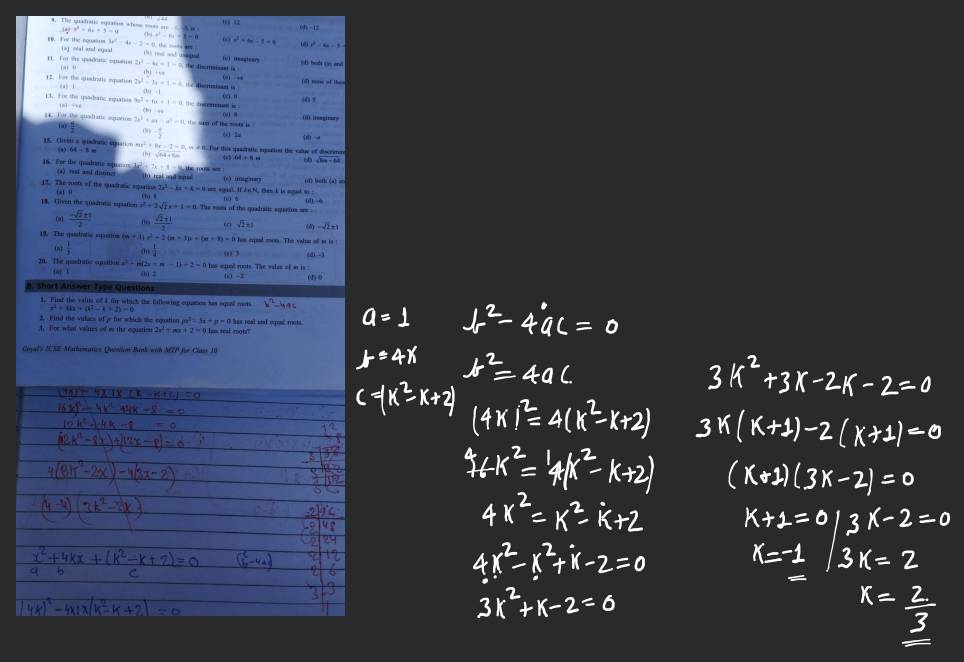 9. The quadratic equation whose roots are
(c) 12
(d) -12
10. For the quadratic equation 3x² - 4x - 2 = 0, the roots are :
(a) real and equal
(b) real and unequal
(c) imaginary
(d) both (a) and
11. For the quadratic equation 2x² - 4x + 1 = 0, the discriminant is :
(a) 0
(b) +ve
(c) -ve
(d) none of these
12. For the quadratic equation 2x² - 3x + 1 = 0, the discriminant is :
(a) 1
(b) -1
(c) 0
(d) 9
13. For the quadratic equation 9x² + 6x + 1 = 0, the discriminant is :
(a) +ve
(b) -ve
(c) 0
(d) imaginary
14. For the quadratic equation 2x² + ax - a² = 0, the sum of the roots is :
(a) a/2
(b) -a/2
(c) 2a
(d) -a
15. Given a quadratic equation mx² + 8x - 2 = 0, m ≠ 0. For this quadratic equation the value of discrimin
(a) 64 - 8 m
(b) √64+8m
(c) 64 + 8 m
(d) √8m-64
16. For the quadratic equation 3x² + 7x + 8 = 0, the roots are :
(a) real and distinct
(b) real and equal
(c) imaginary
(d) both (a) an
17. The roots of the quadratic equation 2x² - kx + k = 0 are equal. If k∈N, then k is equal to :
(a) 0
(b) 8
(c) 6
(d) -6
18. Given the quadratic equation x² + 2√2x + 1 = 0. The roots of the quadratic equation are :
(a) -√2±1/2
(b) √2±1/2
(c) √2±1
(d) -√2±1
19. The quadratic equation (m + 1) x² + 2 (m + 3)x + (m + 8) = 0 has equal roots. The value of m is :
(a) 1/3
(c) 3
(d) -3
20. The quadratic equation x² - m(2x + m - 1) + 2 = 0 has equal roots. The value of m is :
(a) 1
(b) 2
(c) -2
(d) 0
B. Short Answer Type Questions
1. Find the value of k for which the following equation has equal roots. b²-4ac
x² + 4kx + (k² - k + 2) = 0
2. Find the values of p for which the equation px² - 5x + p = 0 has real and equal roots.
3. For what values of m the equation 2x² + mx + 2 = 0 has real roots?
Goyal's ICSE Mathematics Question Bank with MTP for Class 10
16k² - 4k² + 4k - 8 = 0
12k² + 4k - 8 = 0
(12k² - 8x) + (12x - 8) = 0
4(8k² - 2x) - 4(3x - 2)
x² + 4kx + (k² - k + 2) = 0 (b²-4ac)
a b c
(4k)² - 4x1x(k² - k + 2) = 0
a = 1
b = 4K
c = (K² - K + 2)
b² - 4ac = 0
b² = 4ac
(4K)² = 4(K² - K + 2)
16K² = 4(K² - K + 2)
4K² = K² - K + 2
4K² - K² + K - 2 = 0
3K² + K - 2 = 0
3K² + 3K - 2K - 2 = 0
3K(K+1) - 2(K+1) = 0
(K+1)(3K-2) = 0
K+1 = 0 / 3K-2 = 0
K = -1 / 3K = 2
K = 2/3